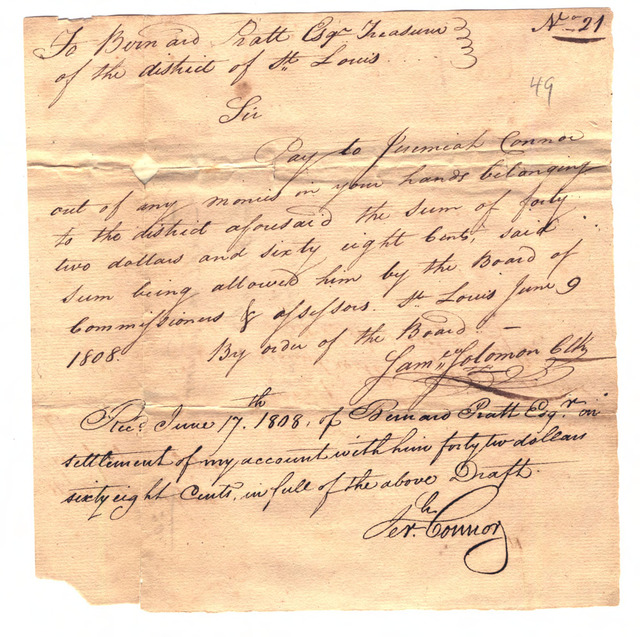 To Bernard Pratt Esqr. Treasurer
No. 21
of the district of St. Louis
49
Sir
Pay to Jeremiah Connor
out of any monies in your hands belonging
to the district aforesaid the sum of forty
two dollars and sixty eight Cents, said
sum being allowed him by the Board of
Commissioners & assessors. St. Louis June 9
1808. By order of the Board. –
Saml. Solomon Clk
Recd. June 17.th 1808, of Bernard Pratt Esqr. on
settlement of my account with him forty two dollars
sixty eight Cents, in full of the above Draft.
Jerh. Connor